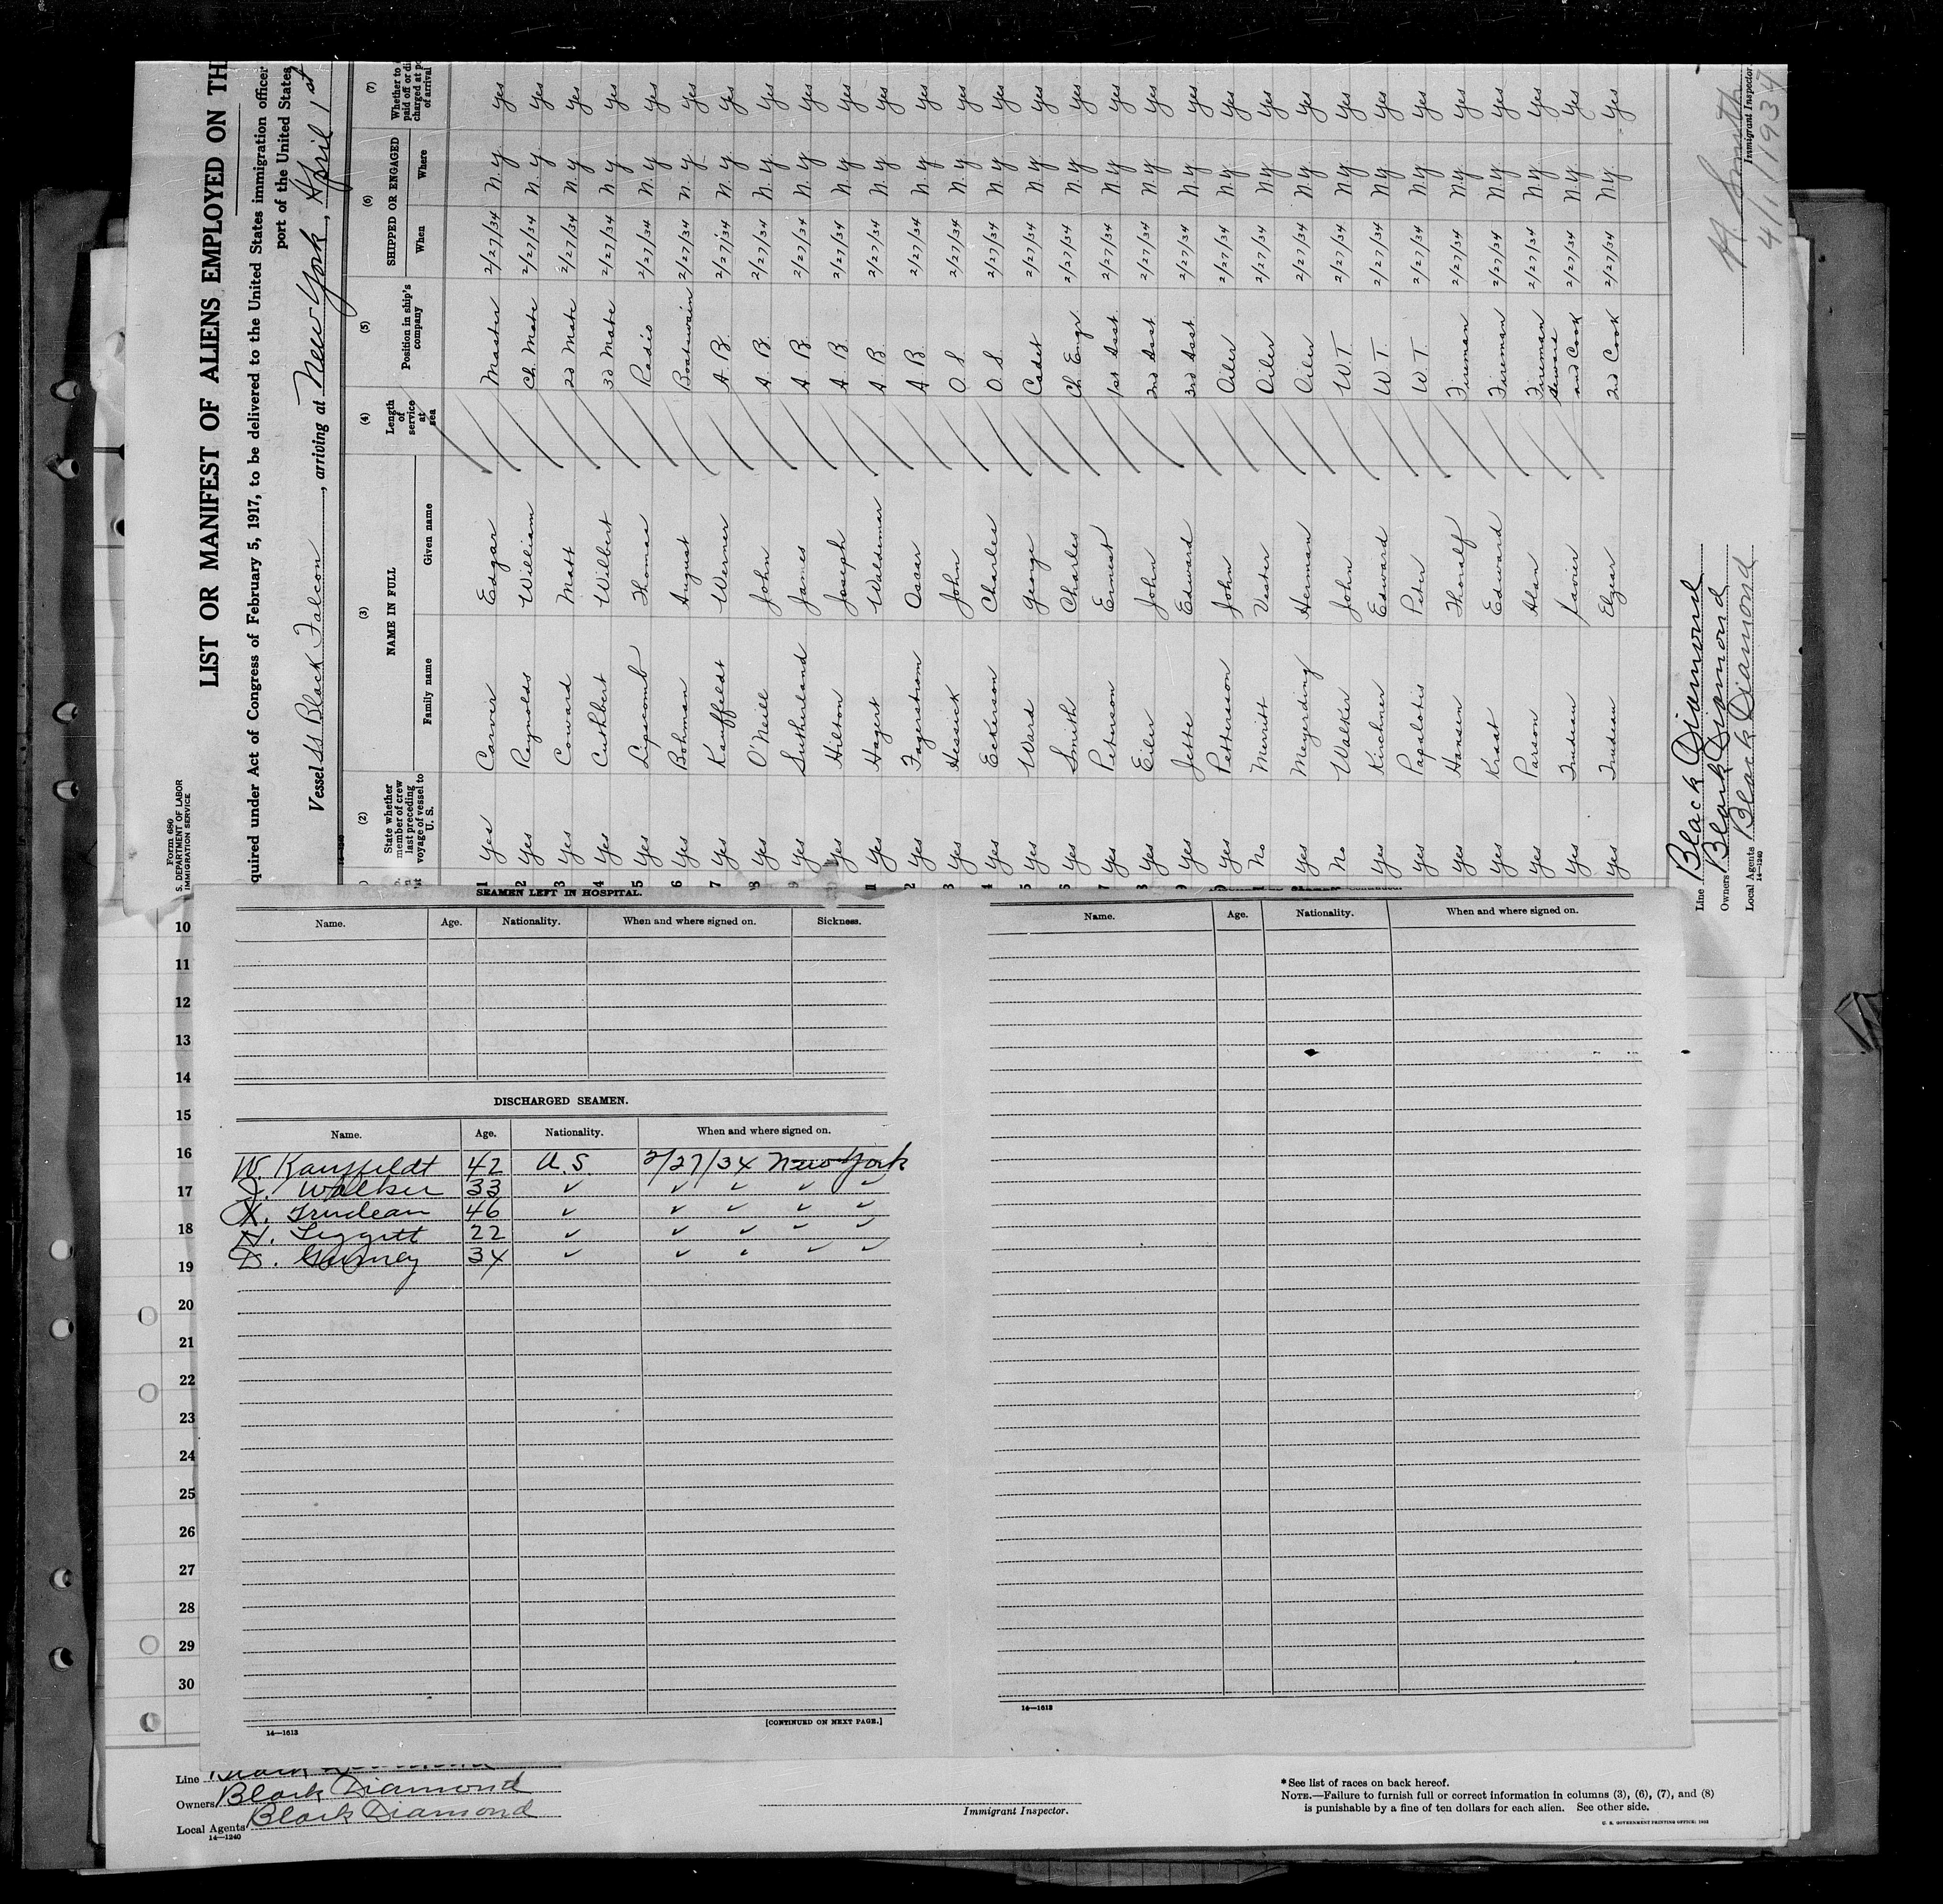 Form 680
S. DEPARTMENT OF LABOR
IMMIGRATION SERVICE
LIST OR MANIFEST OF ALIENS EMPLOYED ON TH
quired under Act of Congress of February 5, 1917, to be delivered to the United States immigration officer
port of the United States
Vessel SS Black Falcon, arriving at New York, April 1st
(2) (3) (4) (5) (6) (7)
State whether member of crew last preceding voyage of vessel to U. S. NAME IN FULL Length of service at sea Position in ship's company SHIPPED OR ENGAGED Whether to paid off or di charged at po of arrival
Family name Given name When Where
1 Yes Carver Edgar Master 2/27/34 N.Y. Yes
2 Yes Reynolds William Ch. Mate 2/27/34 N.Y. Yes
3 Yes Conward Matt 2d Mate 2/27/34 N.Y. Yes
4 Yes Cuthbert Wilbert 3d Mate 2/27/34 N.Y. Yes
5 Yes Lipscomb Thomas Radio 2/27/34 N.Y. Yes
6 Yes Bohman August Boatswain 2/27/34 N.Y. Yes
7 Yes Kauffeldt Werner A. B. 2/27/34 N.Y. Yes
8 Yes O'Neill John A. B. 2/27/34 N.Y. Yes
9 Yes Sutherland James A. B. 2/27/34 N.Y. Yes
Yes Hilton Joseph A. B. 2/27/34 N.Y. Yes
1 Yes Hagert Waldemar A. B. 2/27/34 N.Y. Yes
2 Yes Fagerstrom Oscar A. B. 2/27/34 N.Y. Yes
3 Yes Hessick John O. S. 2/27/34 N.Y. Yes
4 Yes Eckerson Charles O. S. 2/27/34 N.Y. Yes
5 Yes Ward George Cadet 2/27/34 N.Y. Yes
6 Yes Smith Charles Ch. Engr 2/27/34 N.Y. Yes
7 Yes Peterson Ernest 1st Asst 2/27/34 N.Y. Yes
8 Yes Eiler John 2nd Asst 2/27/34 N.Y. Yes
9 Yes Jette Edward 3rd Asst 2/27/34 N.Y. Yes
0 Yes Pettersson John Oiler 2/27/34 N.Y. Yes
1 No Merritt Vester Oiler 2/27/34 N.Y. Yes
Yes Meyerding Herman Oiler 2/27/34 N.Y. Yes
No Walker John W. T. 2/27/34 N.Y. Yes
Yes Kirchner Edward W. T. 2/27/34 N.Y. Yes
Yes Papalotis Peter W. T. 2/27/34 N.Y. Yes
Yes Hansen Thoralf Fireman 2/27/34 N.Y. Yes
Yes Kraat Edward Fireman 2/27/34 N.Y. Yes
Yes Parson Alan Fireman 2/27/34 N.Y. Yes
Yes Trudeau Xavier Steward and Cook 2/27/34 N.Y. Yes
Yes Trudeau Elgar 2nd Cook 2/27/34 N.Y. Yes
Line Black Diamond
Owners Black Diamond
Local Agents Black Diamond
14—1240
H. Smith
Immigrant Inspector
4/1/1934
SEAMEN LEFT IN HOSPITAL.
Name. Age. Nationality. When and where signed on. Sickness.
DISCHARGED SEAMEN.
Name. Age. Nationality. When and where signed on.
W. Kauffeldt 42 U.S. 2/27/34 New York
J. Walker 33 ✓ ✓ ✓ ✓ ✓
X. Trudeau 46 ✓ ✓ ✓ ✓ ✓
H. Leggitt 22 ✓ ✓ ✓ ✓ ✓
D. Gurney 34 ✓ ✓ ✓ ✓ ✓
14—1613
[CONTINUED ON NEXT PAGE.]
Name. Age. Nationality. When and where signed on.
14—1613
10
11
12
13
14
15
16
17
18
19
20
21
22
23
24
25
26
27
28
29
30
Line Black Diamond
Owners Black Diamond
Local Agents Black Diamond
14—1240
Immigrant Inspector.
*See list of races on back hereof.
NOTE.—Failure to furnish full or correct information in columns (3), (6), (7), and (8)
is punishable by a fine of ten dollars for each alien. See other side.
U. S. GOVERNMENT PRINTING OFFICE: 1932